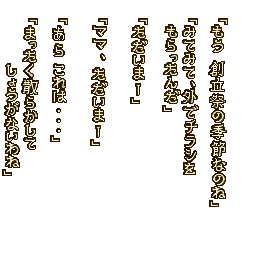 『もう 創立祭の季節なのね』
『みてみて、外でチラシを
もらったんだ』
『ただいまー』
『ママ、ただいまー』
『あら これは・・・』
『まったく散らかして
しょうがないわね』